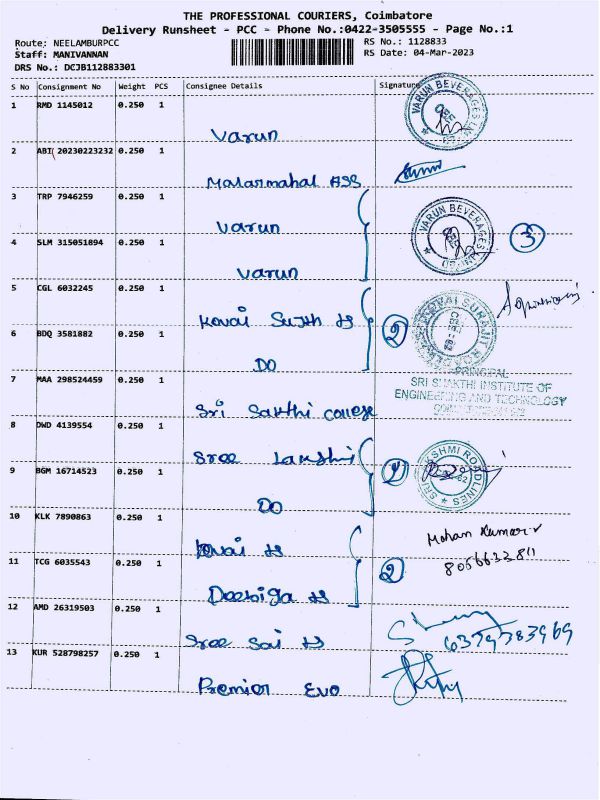 THE PROFESSIONAL COURIERS, Coimbatore
Delivery Runsheet - PCC - Phone No.:0422-3505555 - Page No.:1
Route: NEELAMBURPCC RS No.: 1128833
Staff: MANIVANNAN RS Date: 04-Mar-2023
DRS No.: DCJB112883301
S No Consignment No Weight PCS Consignee Details Signature
1 RMD 1145012 0.250 1
Varun
VARUN BEVERAGES
2 ABI 20230223232 0.250 1
Malarmahal ASS
3 TRP 7946259 0.250 1
Varun
VARUN BEVERAGES
3
4 SLM 315051894 0.250 1
Varun
5 CGL 6032245 0.250 1
Kovai
2
6 BDQ 3581882 0.250 1
DO
7 MAA 298524459 0.250 1
Sri Sakthi College
PRINCIPAL
SRI SHAKTHI INSTITUTE OF
ENGINEERING AND TECHNOLOGY
8 DWD 4139554 0.250 1
Sree Lakshmi
LAKSHMI ROADLINES
9 BGM 16714523 0.250 1
DO
10 KLK 7890863 0.250 1
Kovai
Mohan Kumar
8056633811
11 TCG 6035543 0.250 1
Deebiga
2
12 AMD 26319503 0.250 1
Sree Sai
6379783969
13 KUR 528798257 0.250 1
Premier Evo